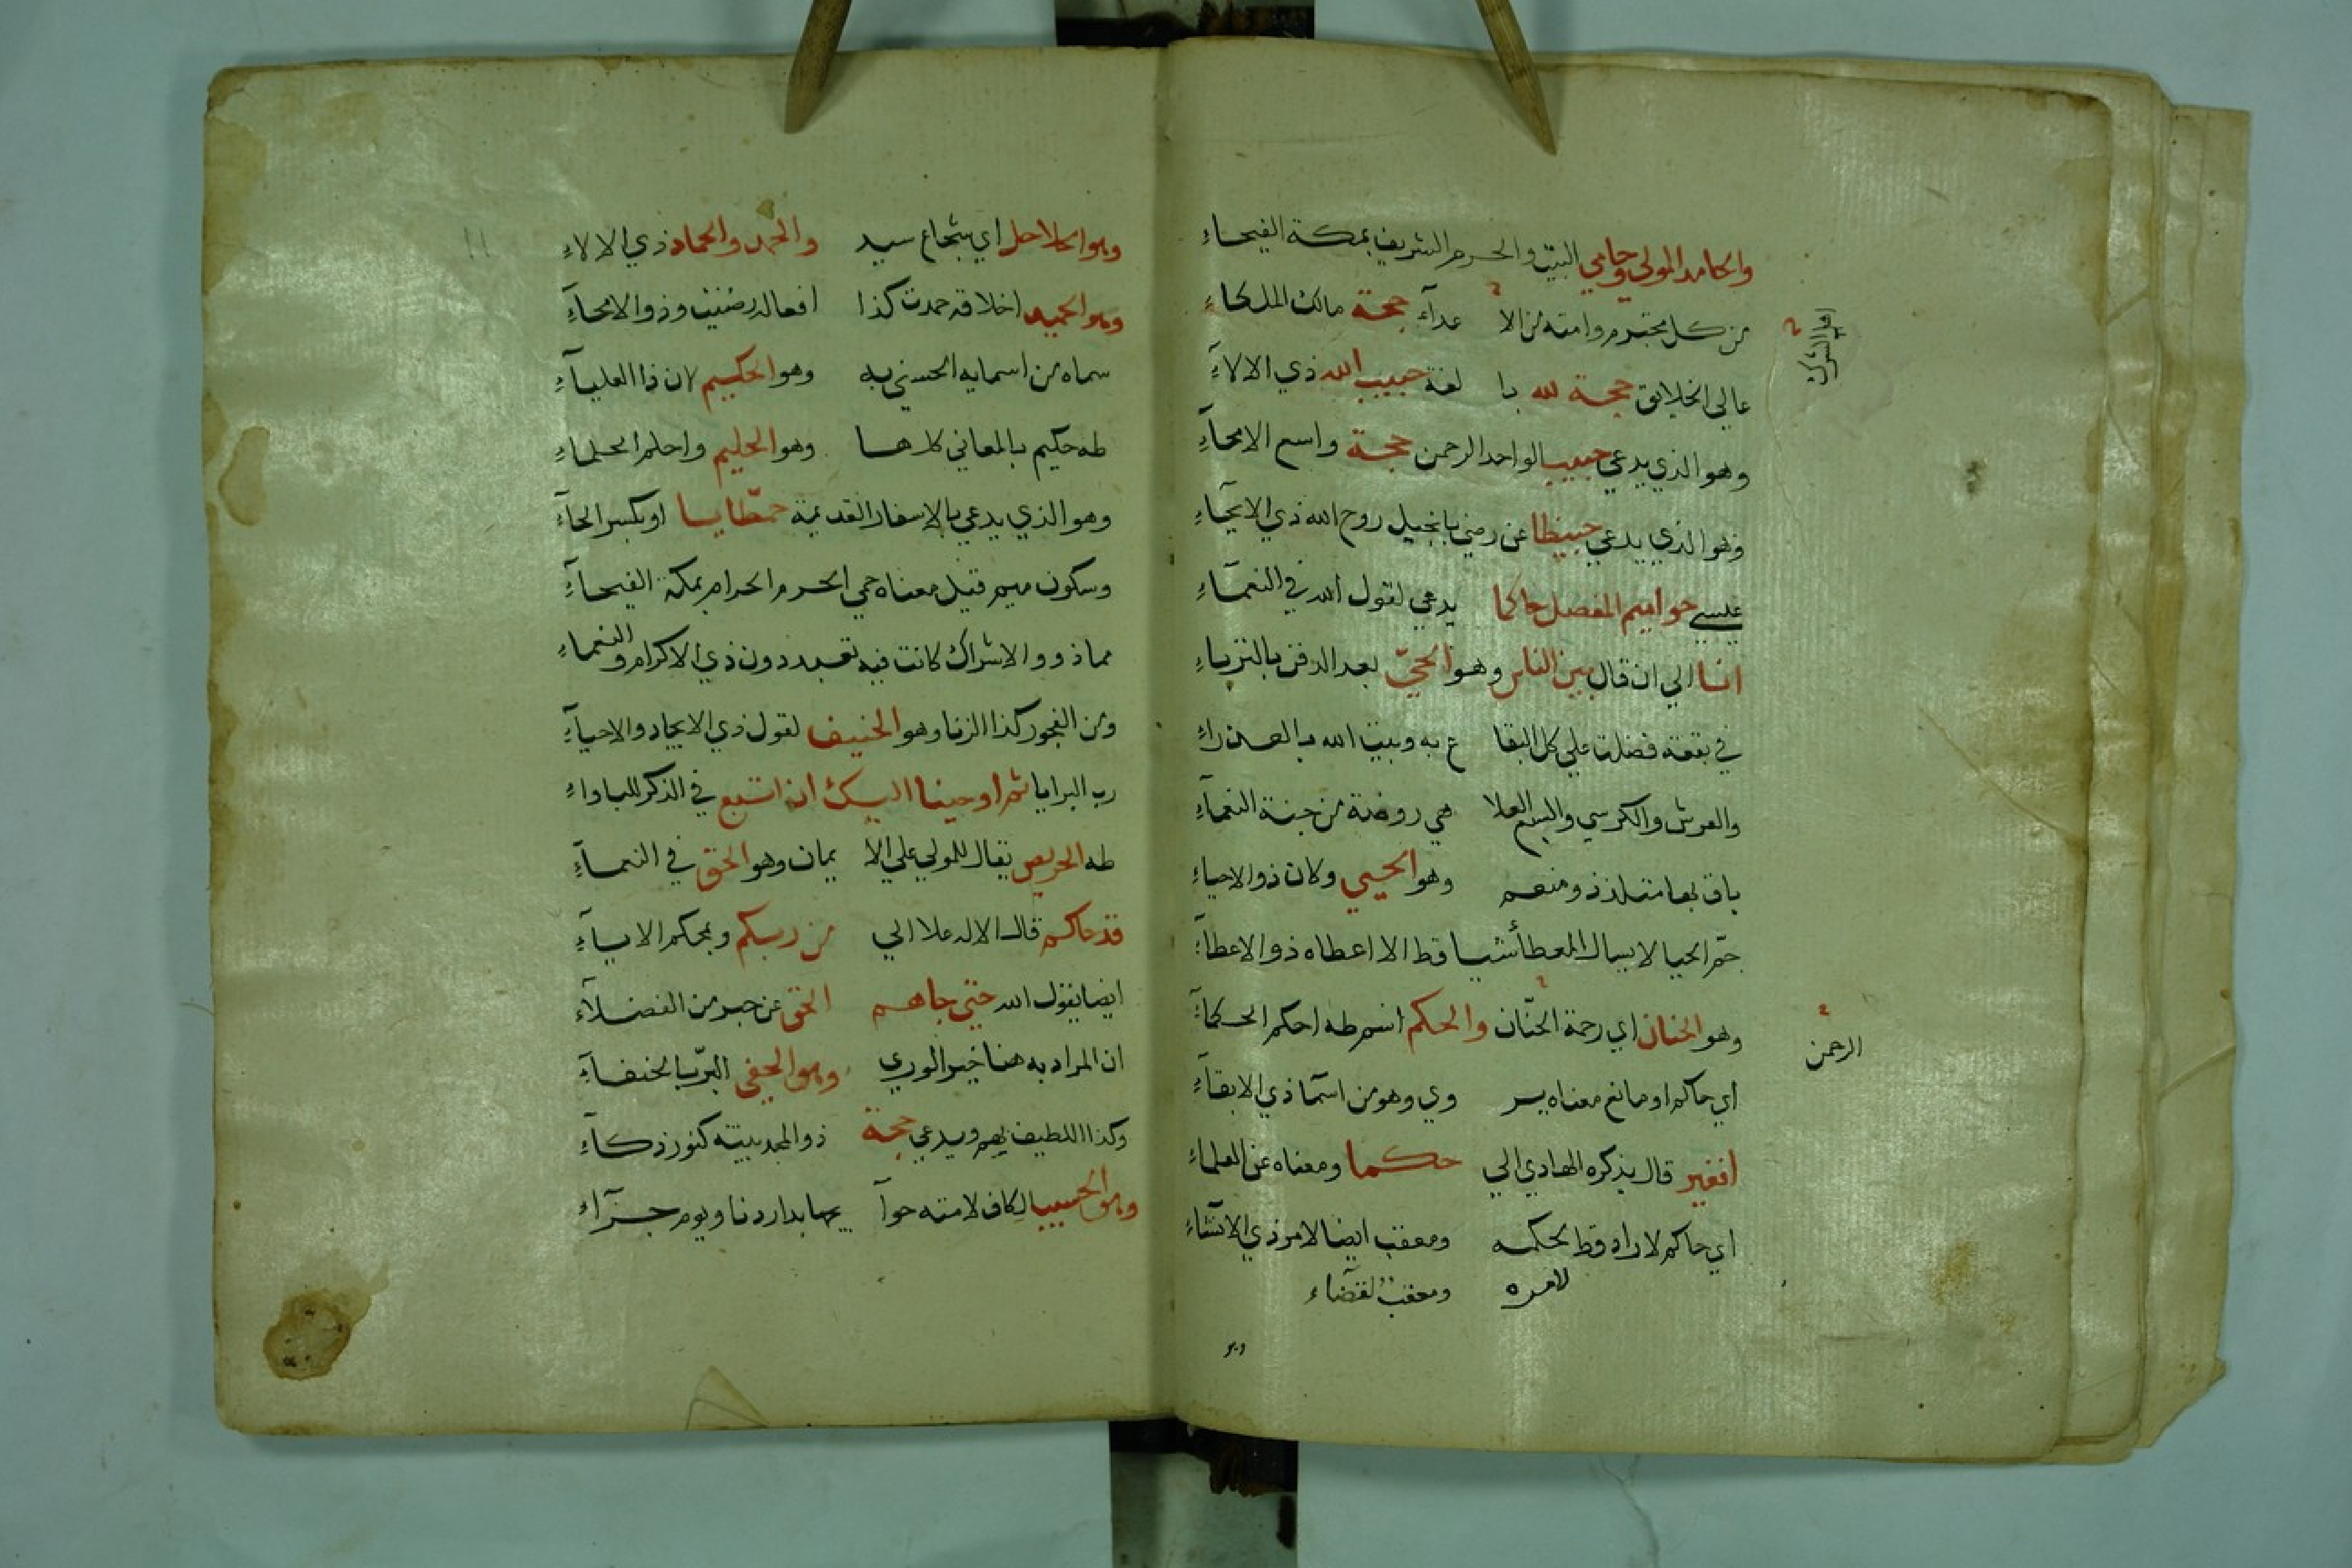 والحامد المولي وحامي البيت والحرم الشريف بمكة الفيحاء
من كل مجترم وامته من الا عدآء حجة مالك الملكاء
اهل الشرك
عالي الخلايق حجة لله با لغة حبيب الله ذي الالآء
وهو الذي يدعي حبيب الواحد الرحمن حجة واسع الامحآء
وهو الذي يدعي حبيظا عن رضي بانجيل روح الله ذي الايحآء
عيسي حواميم المفصل حاكما يدعي لقول الله في النعمآء
انا الي ان قال بين الناس وهو الحيّ بعد الدفن بالتزباء
في بقعة فضلت علي كل البقا ع به وبيت الله با العذراء
والعرش والكرسي والسبع العلا هي روضة من جنة النعمآء
باق بها متلذذ ومنعم وهو الحيي وكان ذو الاحياء
جمّ الحيا لا يسال المعطا شيا قط الا اعطاه ذو الاعطآء
وهو الحنان اي رحمة الحنّان والحكم اسم طه احكم الحكمآء
الرحمن
اي حاكم او مانع معناه ير وي وهو من اسما ذي الابقآء
افغير قال بذكره الهادي الي حكما ومعناه عن العلماء
اي حاكم لا راد قط لحكمه ومعقب ايضا لامر ذي الانشاء
لامره ومعقب لقضاء
وهو
١١
وهو الحلاحل اي شجاع سيد والحمد والحماد ذي الالاء
وهو الحميد اخلاقه حمدت كذا افعاله رضيت وذو الامحآء
سماه من اسمايه الحسني به وهو الحكيم لان ذا العليآء
طه حكيم بالمعاني كلها وهو الحليم واحلم الحلماء
وهو الذي يدعي بالاسفار القديمة حمّطايا او بكسر الحآء
وسكون ميم قيل معناه حمي الحرم الحرام بمكة الفيحآء
مما ذوو الاشراك كانت فيه تعبد دون ذي الاكرام والنعماء
ومن الفجور كذا الزنا وهو الحنيف لقول ذي الايجاد والاحيآء
رب البرايا ثم اوحينا اليك ان اتبع في الذكر للباواء
طه الحريص يقال للمولي علي الا يمان وهو الحق في النعمآء
قد جاكم قال الاله علا الي من ربكم وبمحكم الانبآء
ايضا بقول الله حتي جاهم الحق عن حبر من الفضلاء
ان المراد به هنا خير الوري وهو الحفي البرّ بالحنفآء
وكذا اللطيف بهم ويدعي حجة ذو المجد بيته كنور ذكآء
وهو الحسيب الكاف لامته حوآ يجها بدار دنا ويوم جزآء